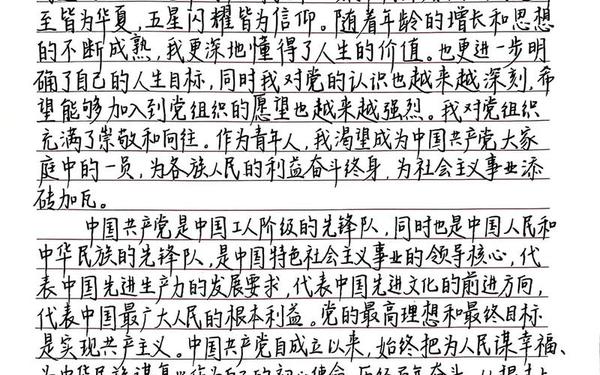 至皆为华夏，五星闪耀皆为信仰。随着年龄的增长和思想
的不断成熟，我更深地懂得了人生的价值。也更进一步明
确了自己的人生目标，同时我对党的认识也越来越深刻，希
望能够加入到党组织的愿望也越来越强烈。我对党组织
充满了崇敬和向往。作为青年人，我渴望成为中国共产党大家
庭中的一员，为各族人民的利益奋斗终身，为社会主义事业添
砖加瓦。
中国共产党是中国工人阶级的先锋队，同时也是中国人民和
中华民族的先锋队，是中国特色社会主义事业的领导核心，代
表中国先进生产力的发展要求，代表中国先进文化的前进方向，
代表中国最广大人民的根本利益。党的最高理想和最终目标
是实现共产主义。中国共产党自成立以来，始终把为人民谋幸福、